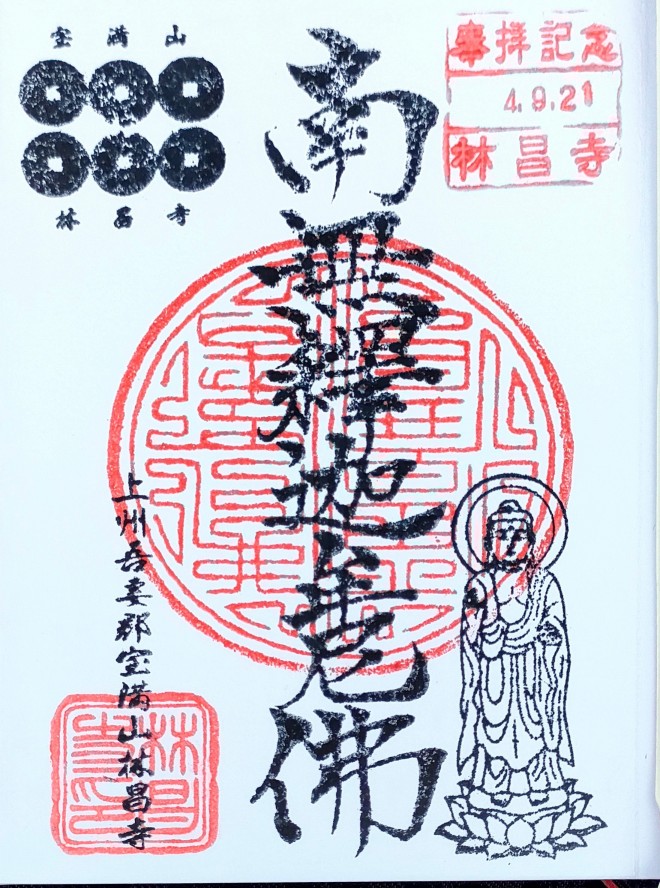 奉拝記念
4.9.21
林昌寺
南無釋迦牟尼佛
宝満山
林昌寺
上州吾妻郡宝満山林昌寺
林昌
寺印